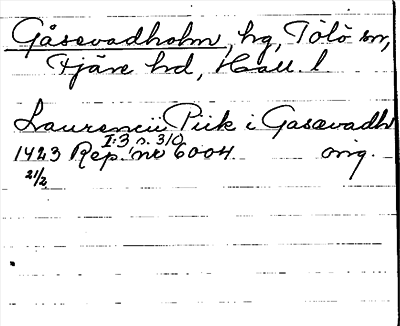 Gåsevadholm, hg, Tölö sn,
Fjäre hd, Hall. l.
Laurencii Piik i Gasævadh
I:3 s. 310
1423 Rep. nr 6004. orig.
21/2